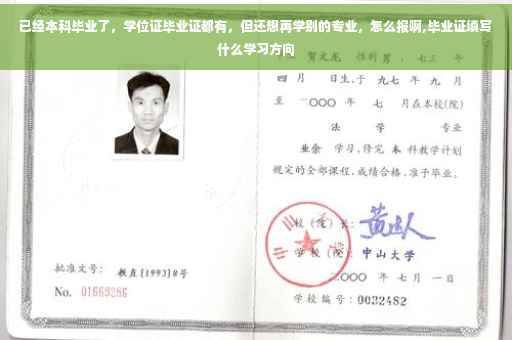 已经本科毕业了，学位证毕业证都有，但还想再学别的专业，怎么报啊,毕业证填写
什么学习方向
贺文龙 性别 男 ，七三 年
四 月 日生,于 九七 年 九 月
至 二〇〇〇 年 七 月在本校(院)
法 学 专业
业余 学习,修完 本 科教学计划
规定的全部课程,成绩合格,准予毕业。
校(院)长：
学校(院)：中山大学
批准文号：教直[1993]8号
二〇〇〇 年 七 月 一 日
No. 01669286
学校编号：0032482